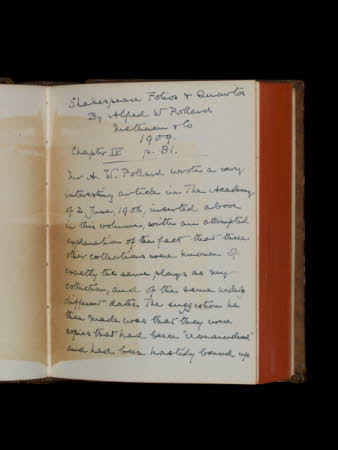 Shakespeare Folios & Quartos
By Alfred W Pollard
Methuen & Co
1909.
Chapter IV p. 81.
Mr A. W. Pollard wrote a very
interesting article in The Academy
of 2 June, 1906, inserted above
in this volume, with an attempted
explanation of the fact that three
other collections were known of
exactly the same plays as my
collection, and of the same widely
different dates. The suggestion he
then made was that they were
copies that had been "remaindered"
and had been hastily bound up